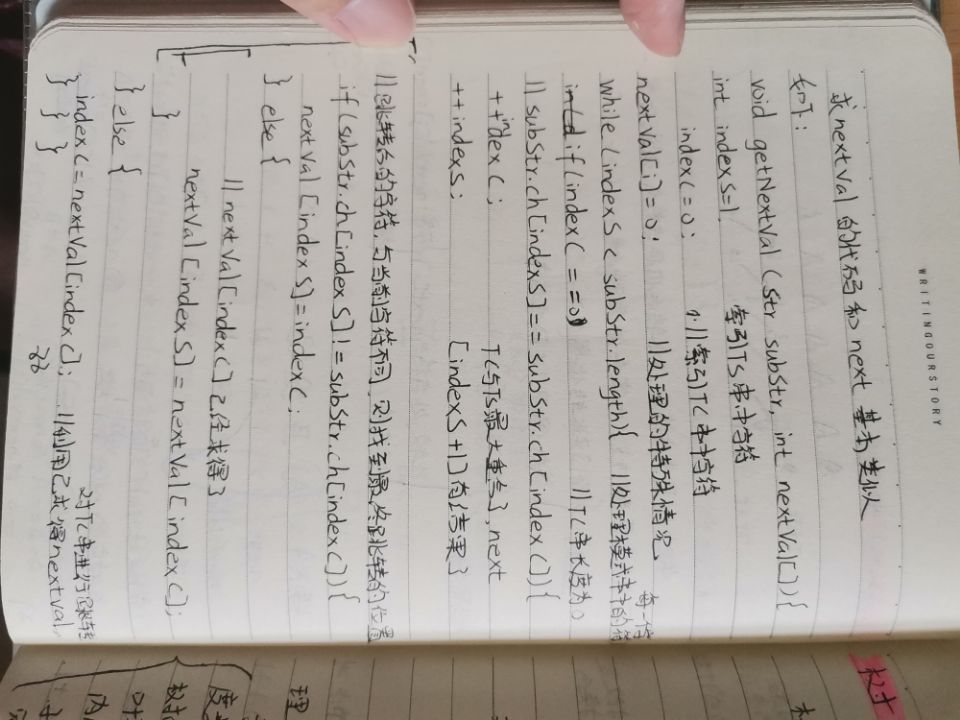 WRITINGOURSTORY
求 nextVal 的代码和 next 基本类似
如下:
void getNextVal (Str subStr, int nextVal[]) {
int indexS=1, 索引TS串中字符
indexC=0; //索引TC串中字符
nextVal[i]=0; //处理的特殊情况 每一位
while (indexS < subStr.length){ //处理模式串中的符
if (indexC==0 //TC串长度为0
|| subStr.ch[indexS]==subStr.ch[indexC]){
++indexC; TC与TS最大重合了,next
++indexS; [indexS+1]有结果了
//跳转后的字符,与当前字符不同,则找到最终跳转的位置
if(subStr.ch[indexS]!=subStr.ch[indexC]){
nextVal[indexS]=indexC;
} else {
//nextVal[indexC]已经求得了
nextVal[indexS]=nextVal[indexC];
}
} else { 对TC串进行跳转
indexC=nextVal[indexC]; //利用已求得nextVal
} } }
理
度